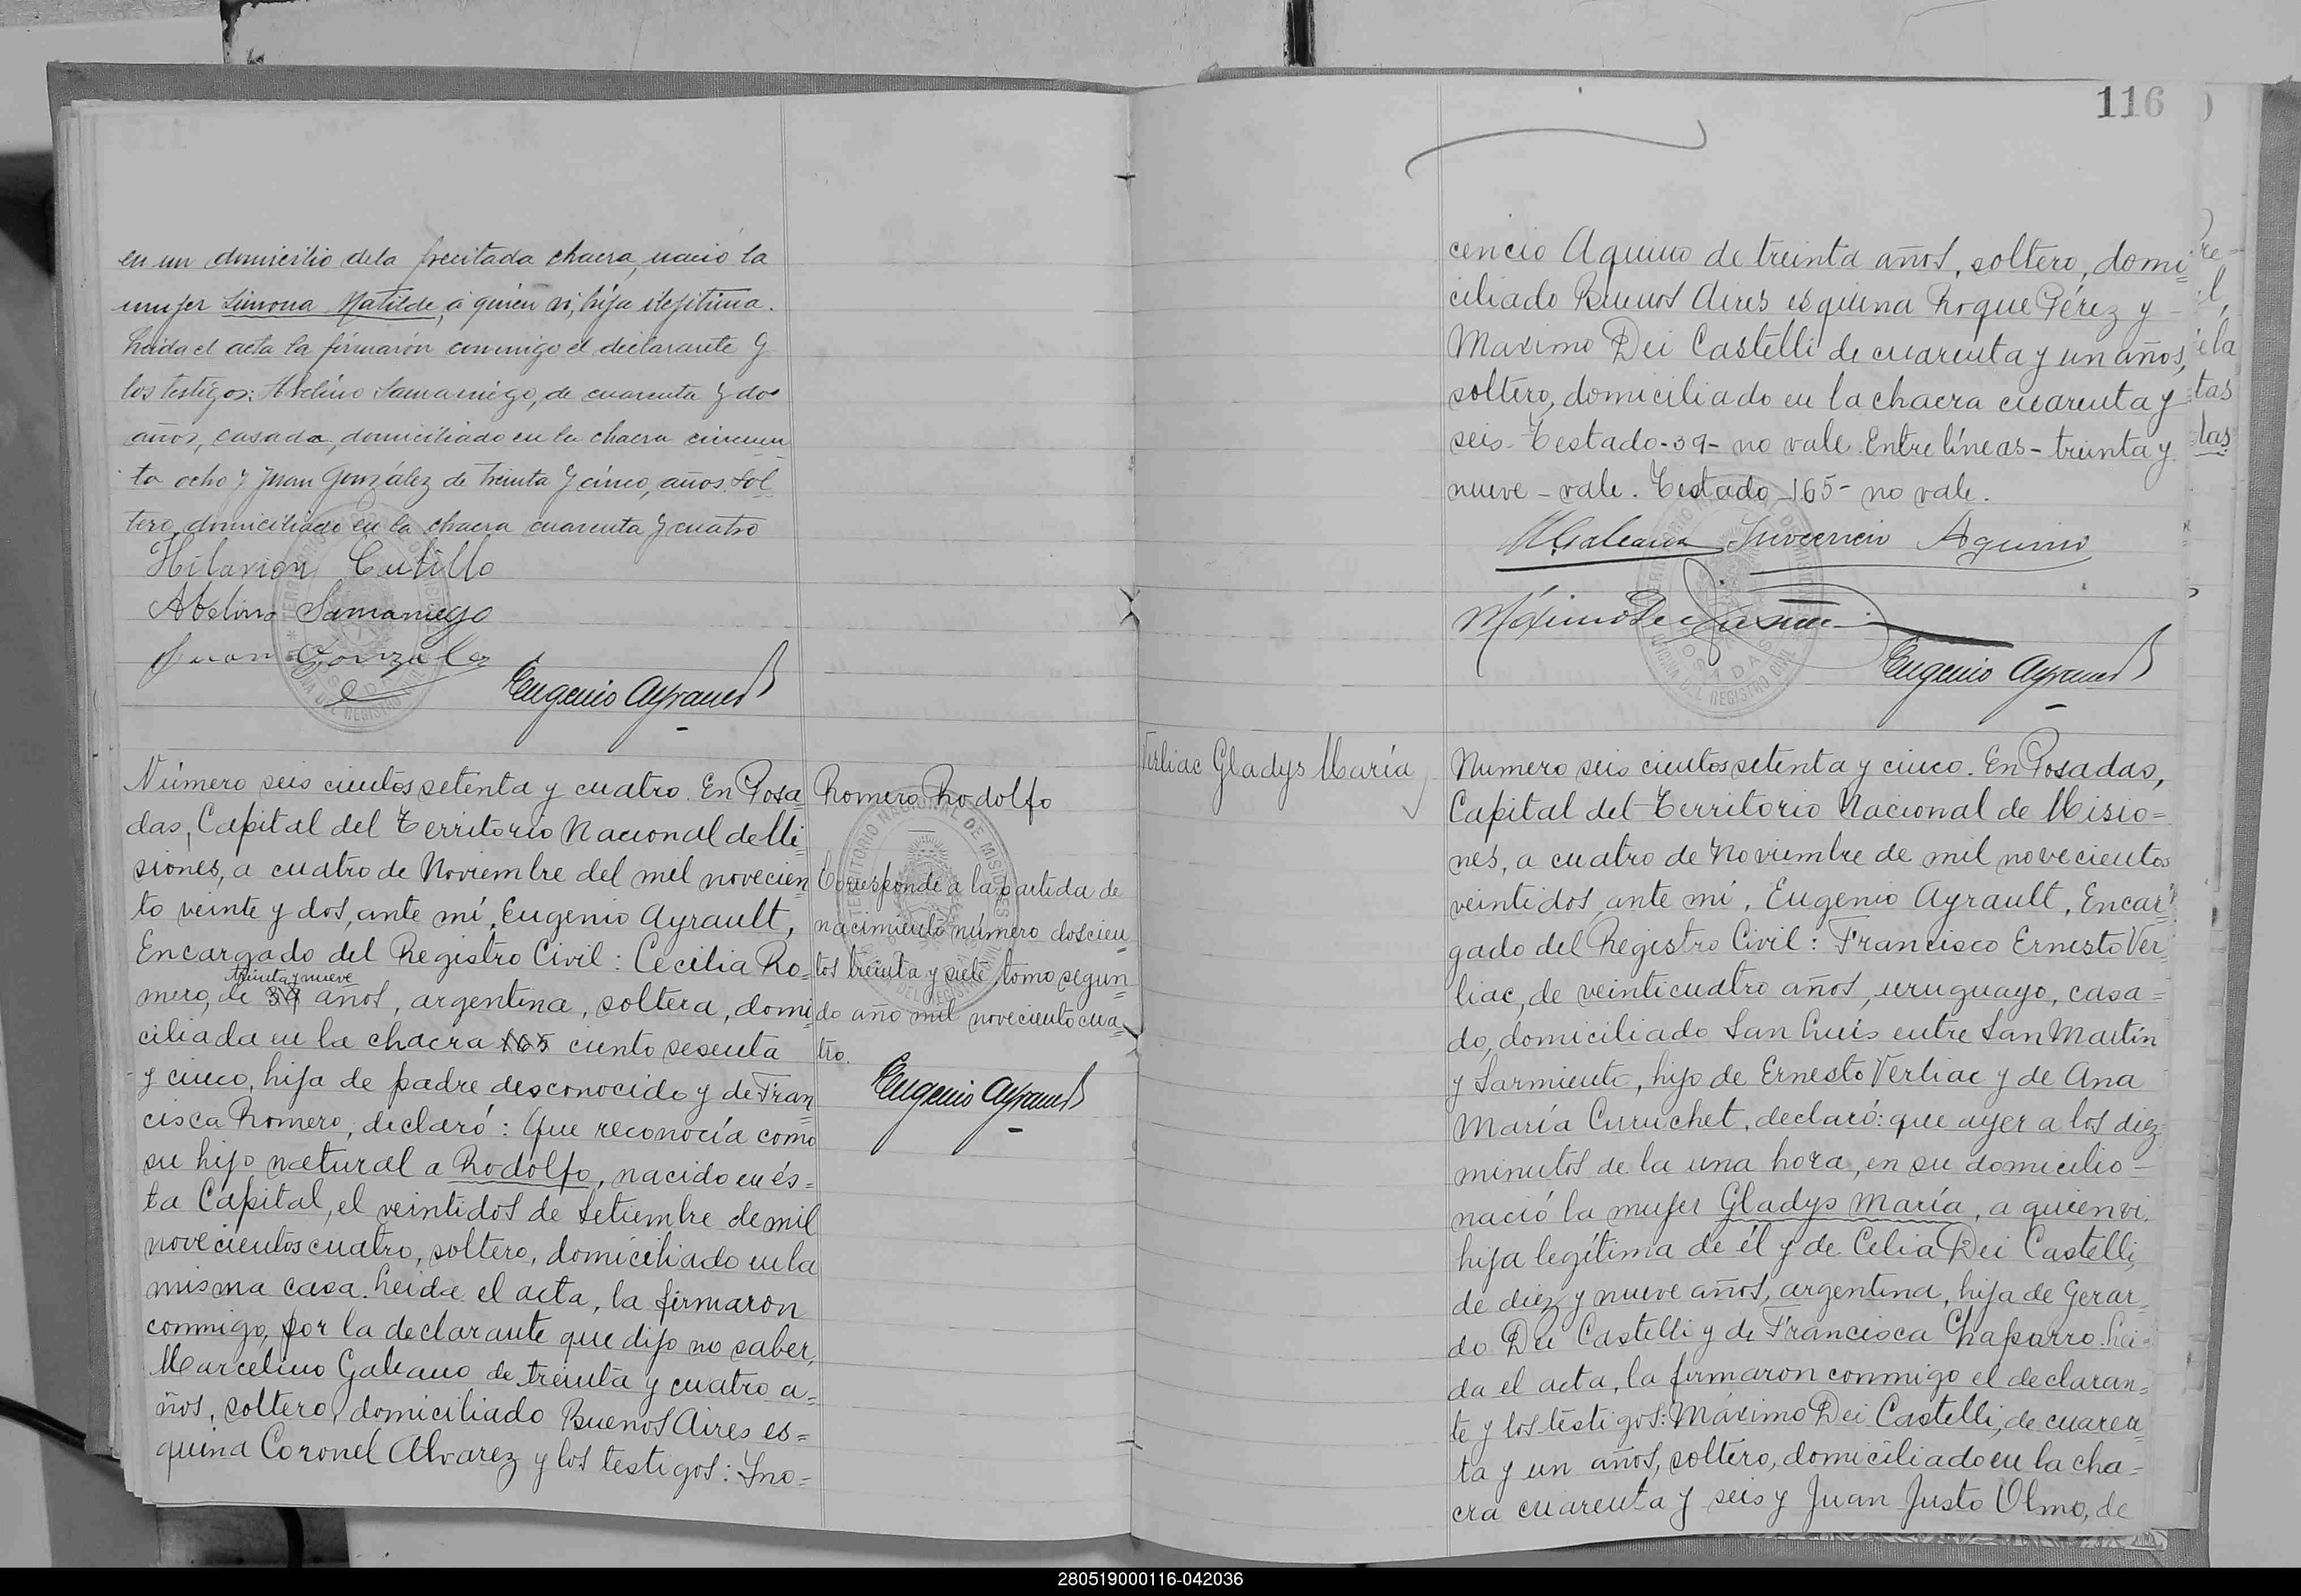 en un domicilio dela precitada chacra, nació la
mujer Simona Matilde, a quien vi, hija ilegitima.
Leida el acta la firmarón conmigo el declarante y
los testigos: Abelino Samaniego, de cuarenta y dos
años, casado, domiciliado en la chacra cincuen
ta ocho y Juan González de treinta y cinco, años sol
tero, domiciliado en la chacra cuarenta y cuatro
Hilarion
Abelino Samaniego
Juan Gonzalez
Eugenio Ayrault
Número seis cientos setenta y cuatro. En Posa
das, Capital del Territorio Nacional de Mi
siones, a cuatro de Noviembre del mil novecien
to veinte y dos, ante mí, Eugenio Ayrault,
Encargado del Registro Civil: Cecilia Ro=
treinta y nueve
mero, de 39 años, argentina, soltera, domi
ciliada en la chacra 165 ciento sesenta
y cinco, hija de padre desconocido y de Fran
cisca Romero, declaró: Que reconocía como
su hijo natural a Rodolfo, nacido en és=
ta Capital, el veintidos de Setiembre de mil
novecientos cuatro, soltero, domiciliado en la
misma casa. Leida el acta, la firmaron
conmigo, por la declarante que dijo no saber,
Marcelino Galeano de treinta y cuatro a=
ños, soltero, domiciliado Buenos Aires es=
quina Coronel Alvarez y los testigos: Ino=
Romero Rodolfo
Corresponde a la partida de
nacimiento número doscien
tos treinta y siete, tomo segun
do año mil novecientocua
tro.
Eugenio Ayrault
116
cencio Aquino de treinta años, soltero, domi
ciliado Buenos Aires esquina Roque Pérez y
Maximo Dei Castelli de cuarenta y un años,
soltero, domiciliado en la chacra cuarenta y
seis. Testado-39-no vale. Entre líneas-treinta y
nueve-vale. Testado-165-no vale.
MGaleano Inocencio Aquino
Máximo Dei Castelli
Eugenio Ayrault
Verliac Gladys María
Numero seis cientos setenta y cinco. En Posadas,
Capital del Territorio Nacional de Misio=
nes, a cuatro de Noviembre de mil novecientos
veintidos, ante mí, Eugenio Ayrault, Encar
gado del Registro Civil: Francisco Ernesto Ver
liac, de veinticuatro años, uruguayo, casa=
do, domiciliado San Luis entre San Martín
y Sarmiento, hijo de Ernesto Verliac y de Ana
María Curuchet, declaró: que ayer a los diez
minutos de la una hora, en su domicilio
nació la mujer Gladys María, a quien vi,
hija legítima de él y de Celia Dei Castelli,
de diez y nueve años, argentina, hija de Gerar
do Dei Castelli y de Francisca Chaparro. Lei=
da el acta, la firmaron conmigo el declaran=
te y los testigos: Máximo Dei Castelli, de cuaren
ta y un años, soltero, domiciliado en la cha=
cra cuarenta y seis y Juan Justo Olmo, de
280519000116-042036